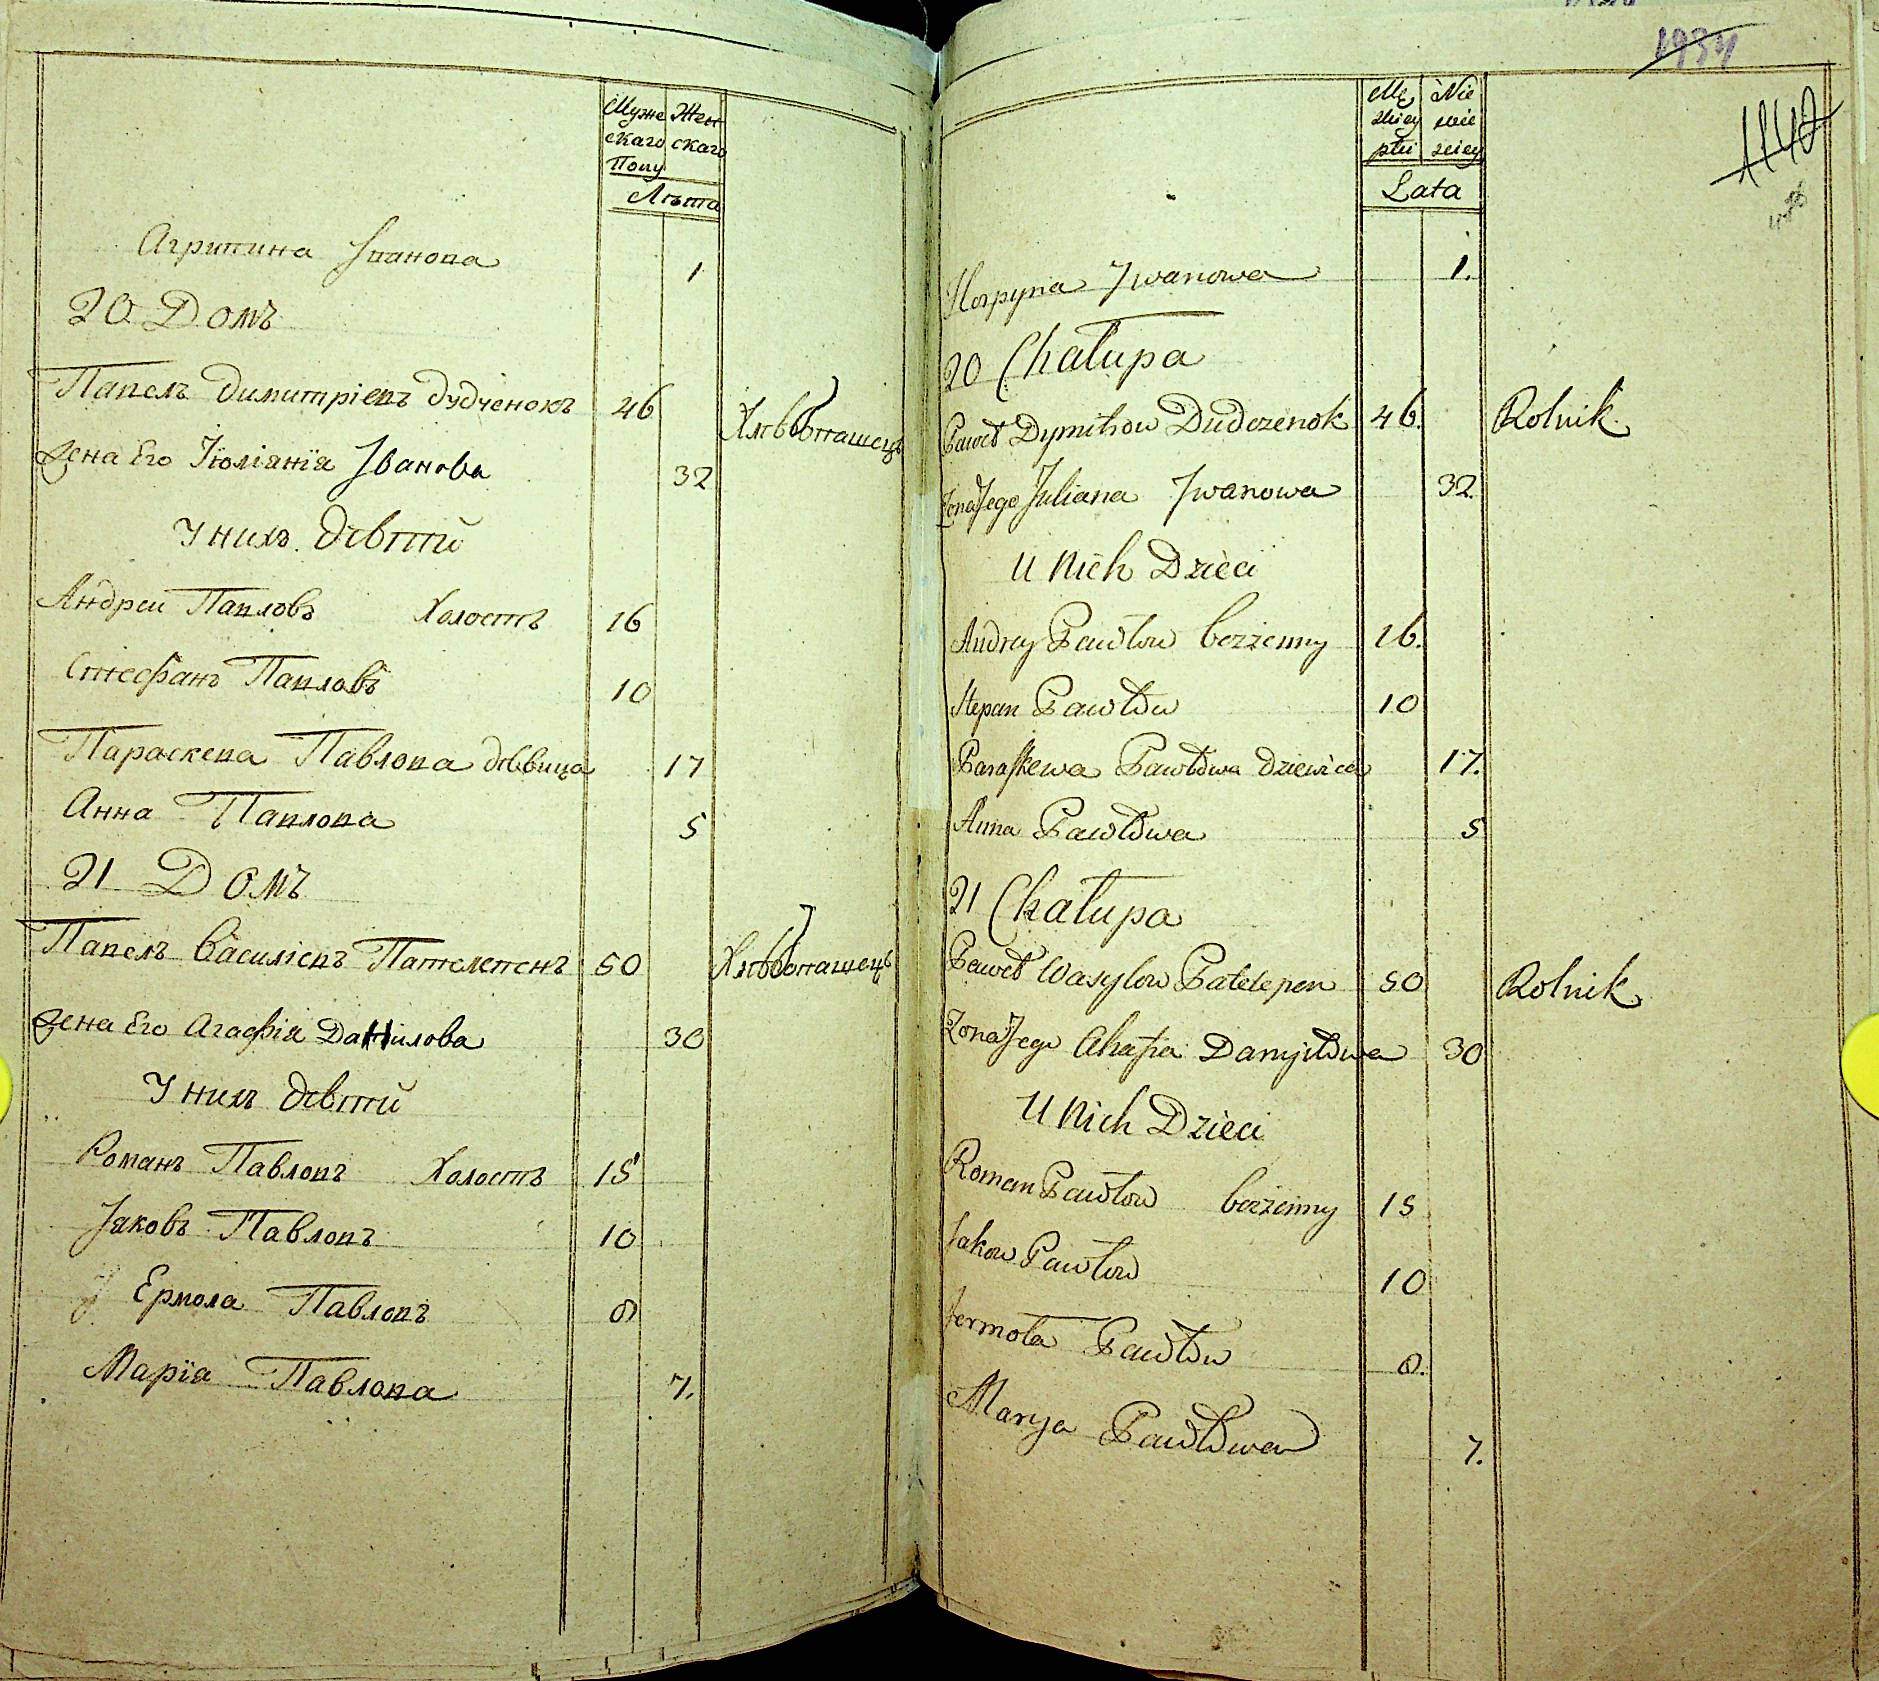 Муже
скаго
Полу
Жен
скаго
Лѣта
Агрипина Іванова 1
20 Домъ
Павелъ Димитріевъ Дудченокъ 46 Хлѣбопашецъ
Жена Его Іюліанїа Іванова 32
У нихъ Дѣтти
Андреи Павловъ Холостъ 16
Стефанъ Павловъ 10
Параскева Павлова дѣвица 17
Анна Павлова 5
21 Домъ
Павелъ Василіевъ Пателепенъ 50 Хлѣбопашецъ
Жена Его Агафія Данілова 30
У нихъ дѣтти
Романъ Павловъ Холостъ 15
Іаковъ Павловъ 10
Ермола Павловъ 8
Марїа Павлова 7.
1934
1140
Mę
zkiey
płci
Nie
wie
sciey
Lata
Horpyna Jwanowa 1.
20 Chałupa
Paweł Dymitrow Dudczenok 46. Rolnik.
Zona Jego Juliana Jwanowa 32
U Nich Dzieci
Andrey Pawłow bezżenny 16.
Stepan Pawłow 10
Paraskewa Pawłowa Dziewica 17.
Anna Pawłowa 5
21 Chałupa
Paweł Wasylow Patelepen 50 Rolnik
Zona Jego Ahafia Danyiłowa 30
U Nich Dzieci
Roman Pawłow bezżenny 15
Jakow Pawłow 10
Jermoła Pawłow 8.
Marya Pawłowa 7.